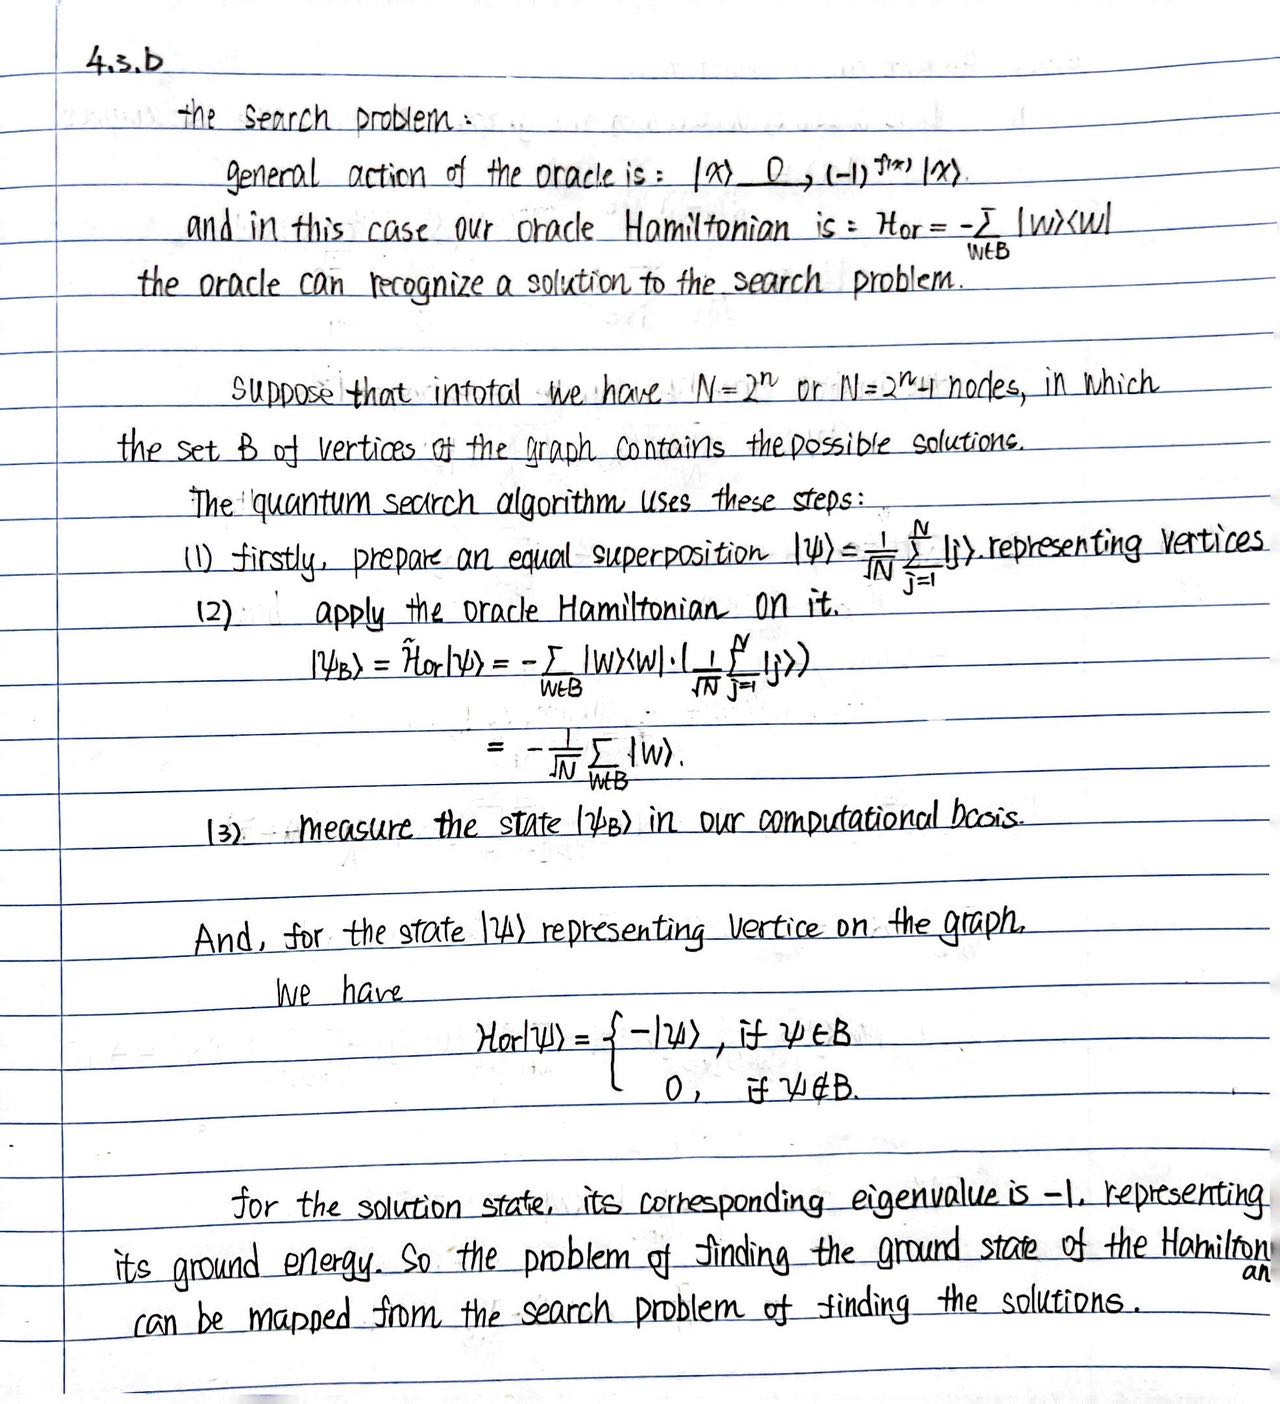 4.3.b
the search problem:
general action of the oracle is: |x⟩ —O→ (-1)^{f(x)} |x⟩.
and in this case our oracle Hamiltonian is: Hor = -∑_{W∈B} |W⟩⟨W|
the oracle can recognize a solution to the search problem.
Suppose that intotal we have N=2^n or N=2^n-1 nodes, in which
the set B of vertices of the graph contains the possible solutions.
The quantum search algorithm uses these steps:
(1) firstly, prepare an equal superposition |ψ⟩ = 1/√N ∑_{j=1}^{N} |j⟩. representing vertices
(2) apply the oracle Hamiltonian on it.
|ψ_B⟩ = H̃or|ψ⟩ = -∑_{W∈B} |W⟩⟨W|·(1/√N ∑_{j=1}^{N} |j⟩)
= -1/√N ∑_{W∈B} |W⟩.
(3). measure the state |ψ_B⟩ in our computational basis.
And, for the state |ψ⟩ representing vertice on the graph.
We have
Hor|ψ⟩ = { -|ψ⟩, if ψ∈B
0, if ψ∉B.
for the solution state, its corresponding eigenvalue is -1. representing
its ground energy. So the problem of finding the ground state of the Hamilton
an
can be mapped from the search problem of finding the solutions.